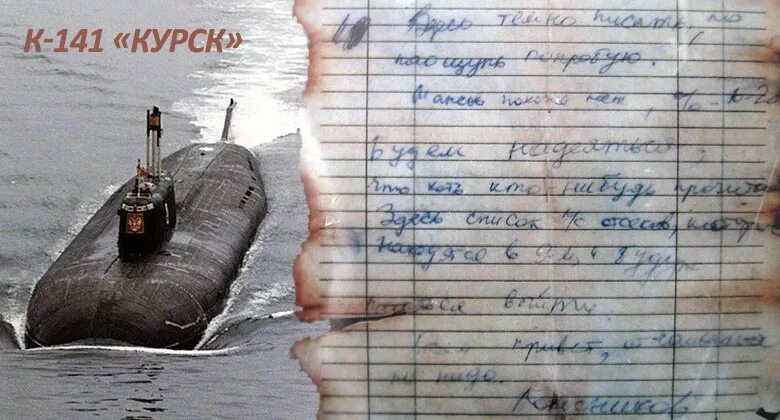 К-141 «КУРСК»
Здесь темно писать, но
наощупь попробую.
Шансов похоже нет, % 10-20
Будем надеяться,
что хоть кто нибудь прочитает
Здесь список л/с отсеков, которые
находятся в 9-м и будут
выйти.
Всем привет, отчаиваться
не надо.
Колесников